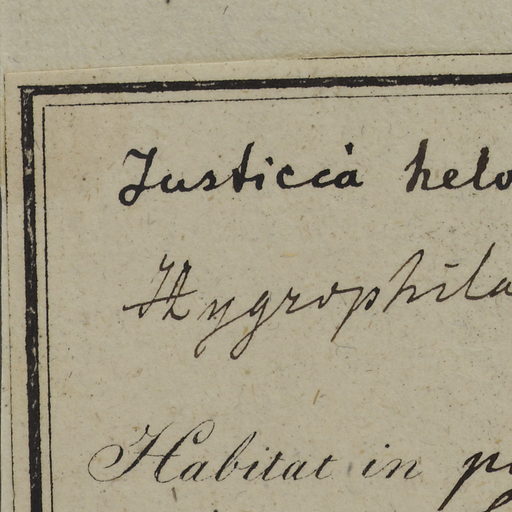 Justicia helo
Hygrophila
Habitat in